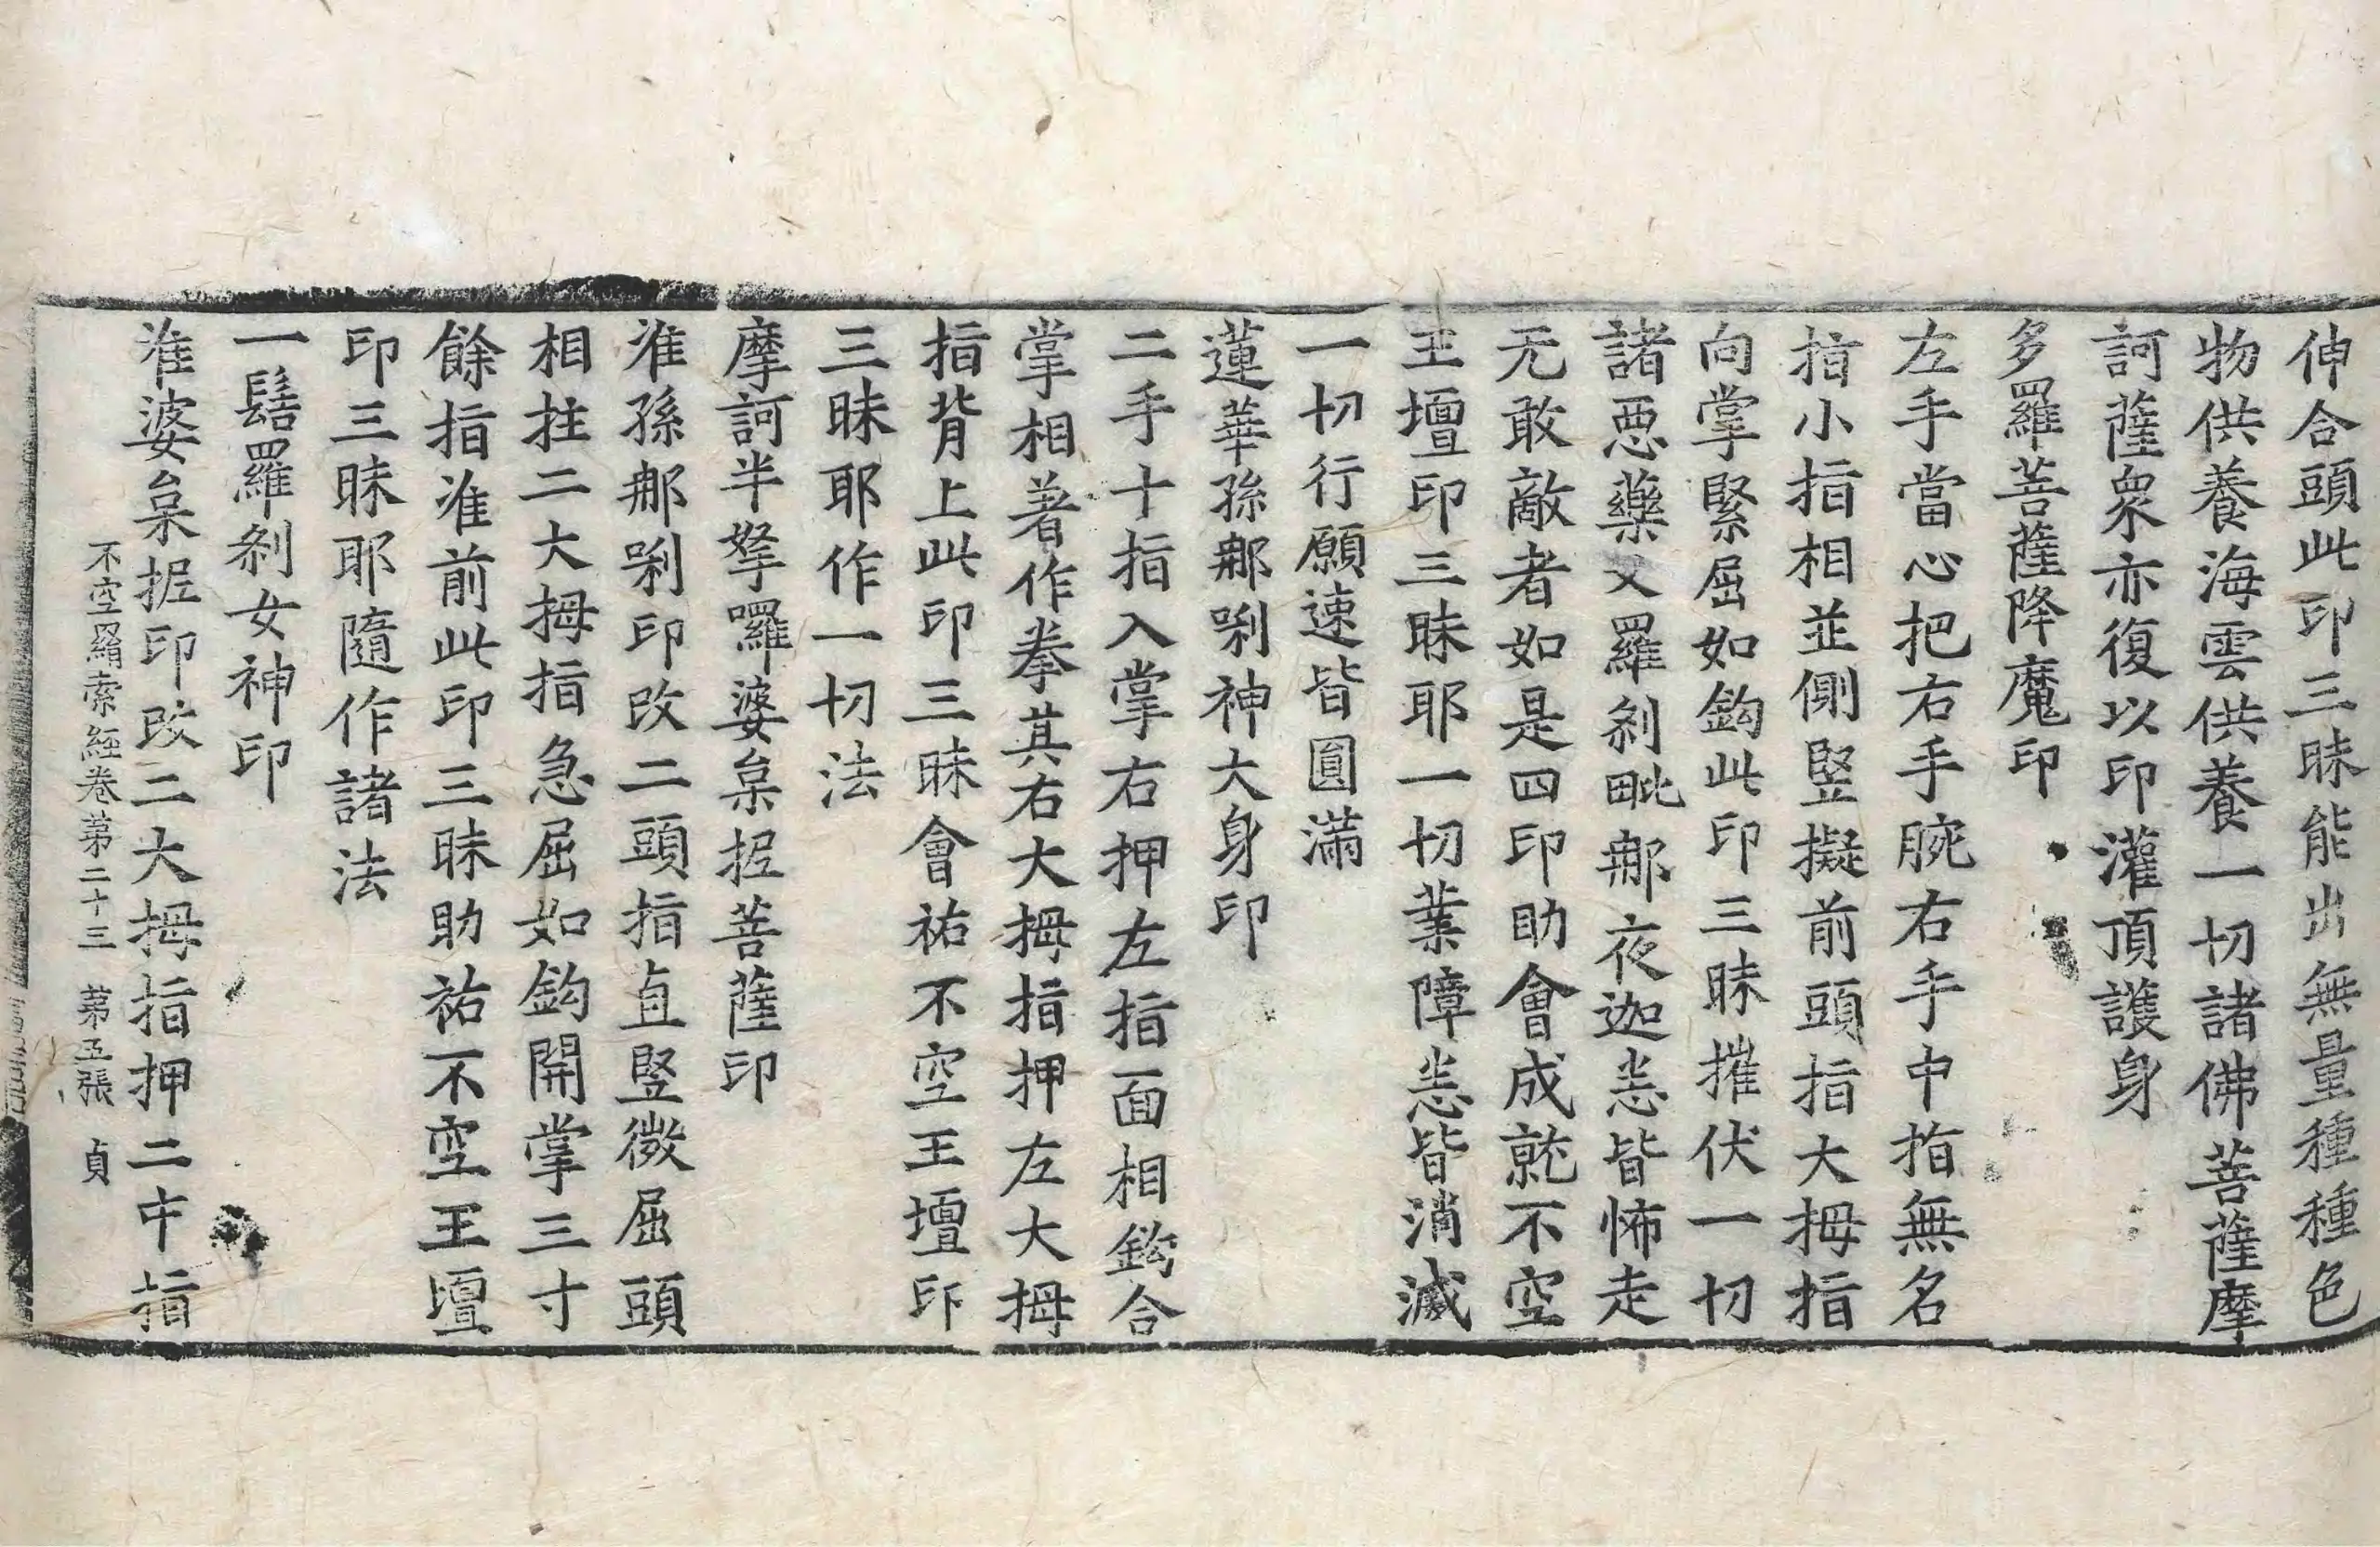 伸合頭此印三昧能出無量種種色
物供養海雲供養一切諸佛菩薩摩
訶薩衆亦復以印灌頂護身
多羅菩薩降魔印
左手當心把右手腕右手中指無名
指小指相並側竪擬前頭指大拇指
向掌緊屈如鉤此印三昧摧伏一切
諸惡藥叉羅剎毗那夜迦恙皆怖走
无敢敵者如是四印助會成就不空
王壇印三昧耶一切業障恙皆消滅
一切行願速皆圓滿
蓮華孫那唎神大身印
二手十指入掌右押左指面相鉤合
掌相著作拳其右大拇指押左大拇
指背上此印三昧會祐不空王壇印
三昧耶作一切法
摩訶半拏囉婆枲抳菩薩印
准孫那唎印改二頭指直竪微屈頭
相拄二大拇指急屈如鉤開掌三寸
餘指准前此印三昧助祐不空王壇
印三昧耶隨作諸法
一髻羅剎女神印
准婆枲抳印改二大拇指押二中指
不空羂索經卷第二十三 第五張 貞